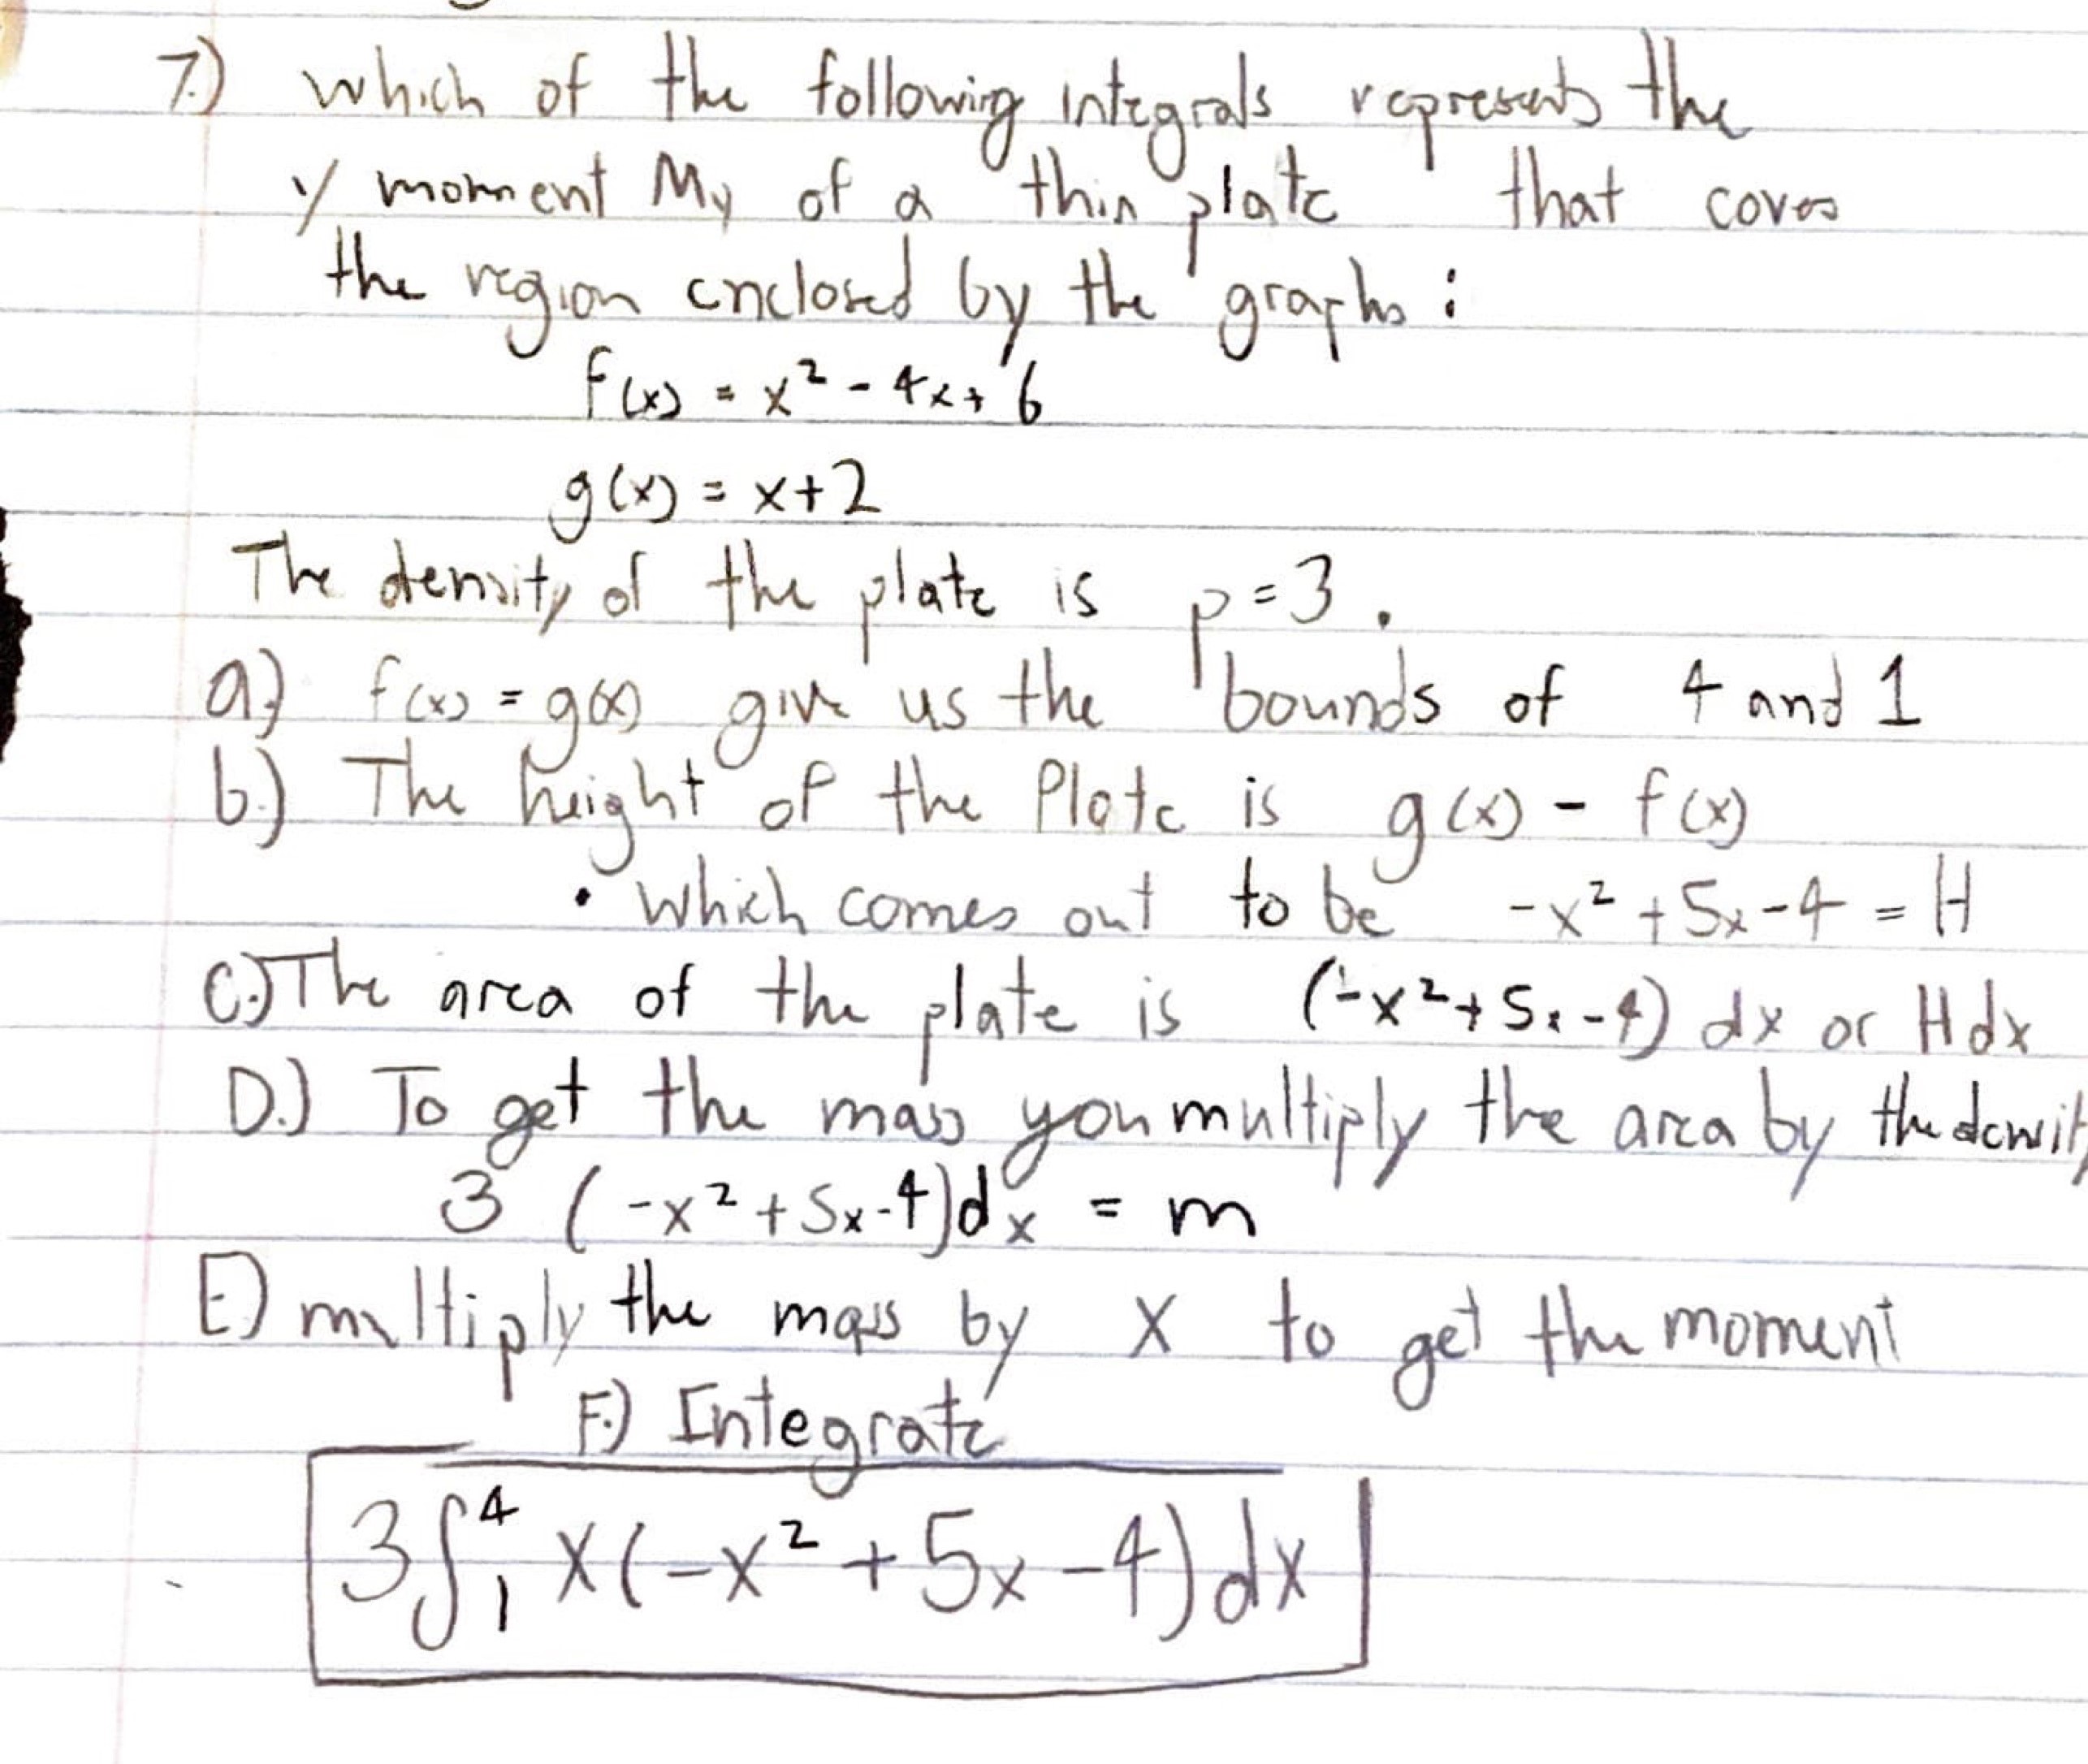 7.) which of the following integrals represents the
y moment My of a thin plate that covers
the region enclosed by the graphs :
f(x) = x² - 4x + 6
g(x) = x+2
The density of the plate is p=3.
a.) f(x) = g(x) give us the bounds of 4 and 1
b.) The height of the Plate is g(x) - f(x)
• which comes out to be -x² + 5x - 4 = H
C.) The area of the plate is (-x² + 5x - 4) dx or H dx
D.) To get the mass you multiply the area by the density
3 (-x² + 5x - 4)dx = m
E) multiply the mass by x to get the moment
F.) Integrate
3∫₁⁴ x(-x² + 5x - 4) dx